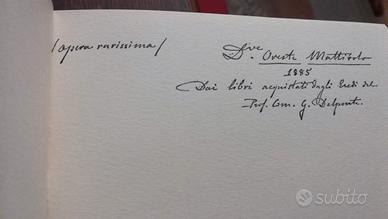 /opera rarissima/
D.re Oreste Mattirolo
1885
Dai libri acquistati dagli Eredi del
Prof. Com. G. Delponte
subito